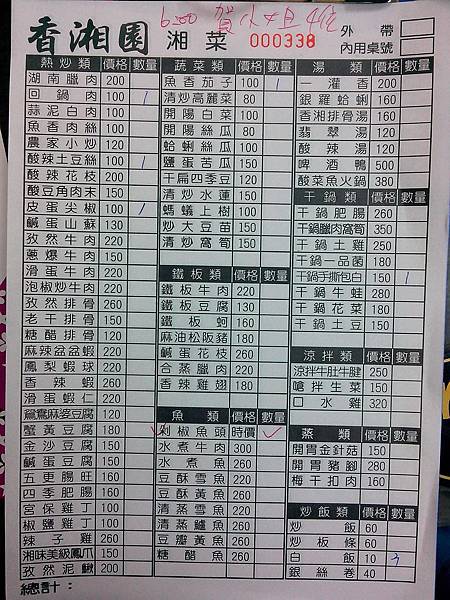 6:00 賀小姐 4位
香湘園 湘菜 000338
外帶
內用桌號
熱炒類 價格 數量
湖南臘肉 200
回鍋肉 100 1
蒜泥白肉 100
魚香肉絲 100
農家小炒 120
酸辣土豆絲 100 1
酸辣花枝 220
酸豆角肉末 150
皮蛋尖椒 100 1
鹹蛋山蘇 130
孜然牛肉 220
蔥爆牛肉 150
滑蛋牛肉 220
泡椒炒牛肉 220
孜然排骨 260
老干排骨 150
糖醋排骨 120
麻辣盆盆蝦 220
鳳梨蝦球 220
香辣蝦 260
滑蛋蝦仁 220
鴛鴦麻婆豆腐 120
蟹黃豆腐 180
金沙豆腐 150
鹹蛋豆腐 150
五更腸旺 160
四季肥腸 160
宮保雞丁 100
椒鹽雞丁 100
辣子雞 260
湘味美級鳳爪 150
孜然泥鰍 200
總計：
蔬菜類 價格 數量
魚香茄子 100 1
清炒高麗菜 80
開陽白菜 80
開陽絲瓜 80
蛤蜊絲瓜 100
鹽蛋苦瓜 150
干扁四季豆 120
清炒水蓮 150
螞蟻上樹 100
炒大豆苗 150
清炒萵筍 150
鐵板類 價格 數量
鐵板牛肉 220
鐵板豆腐 130
鐵板蚵 160
麻油松阪豬 180
鹹蛋花枝 260
合蒸臘肉 220
香辣雞翅 180
魚類 價格 數量
剁椒魚頭 時價 ✓
水煮牛肉 300
水煮魚 260
豆酥雪魚 220
豆酥黃魚 260
清蒸雪魚 220
清蒸鱸魚 260
豆瓣黃魚 260
糖醋魚 260
湯類 價格 數量
一灌香 240
銀羅蛤蜊 160
香湘排骨湯 160
翡翠湯 120
酸辣湯 120
啤酒鴨 500
酸菜魚火鍋 380
干鍋類 價格 數量
干鍋肥腸 260
干鍋臘肉萵筍 350
干鍋土雞 250
干鍋一品菌 180
干鍋手撕包白 150 1
干鍋牛蛙 280
干鍋花菜 180
干鍋土豆 150
涼拌類 價格 數量
涼拌牛肚牛腱 250
嗆拌生菜 150
口水雞 320
蒸類 價格 數量
開胃金針菇 150
開胃豬腳 280
梅干扣肉 160
炒飯類 價格 數量
炒飯 60
炒板條 60
白飯 10 3
銀絲卷 40